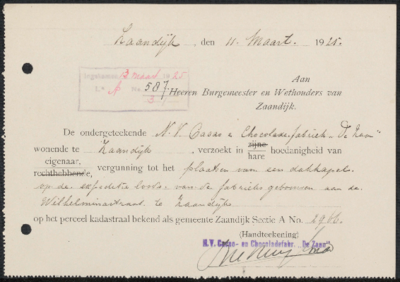 Zaandijk, den 11 Maart 1925.
Aan
Ingekomen 12 Maart 25
No. 507
Heeren Burgemeester en Wethouders van
Zaandijk.
De ondergeteekende N.V. Cacao & Chocoladefabriek "De Zaan"
wonende te Zaandijk verzoekt in zijne hare hoedanigheid van
eigenaar, rechthebbende, vergunning tot het plaatsen van een dakkapel
op de expeditie van de fabrieksgebouwen aan de
Wilhelminastraat te Zaandijk
op het perceel kadastraal bekend als gemeente Zaandijk Sectie A No.
(Handteekening)
N.V. Cacao- en Chocoladefabr. „De Zaan"